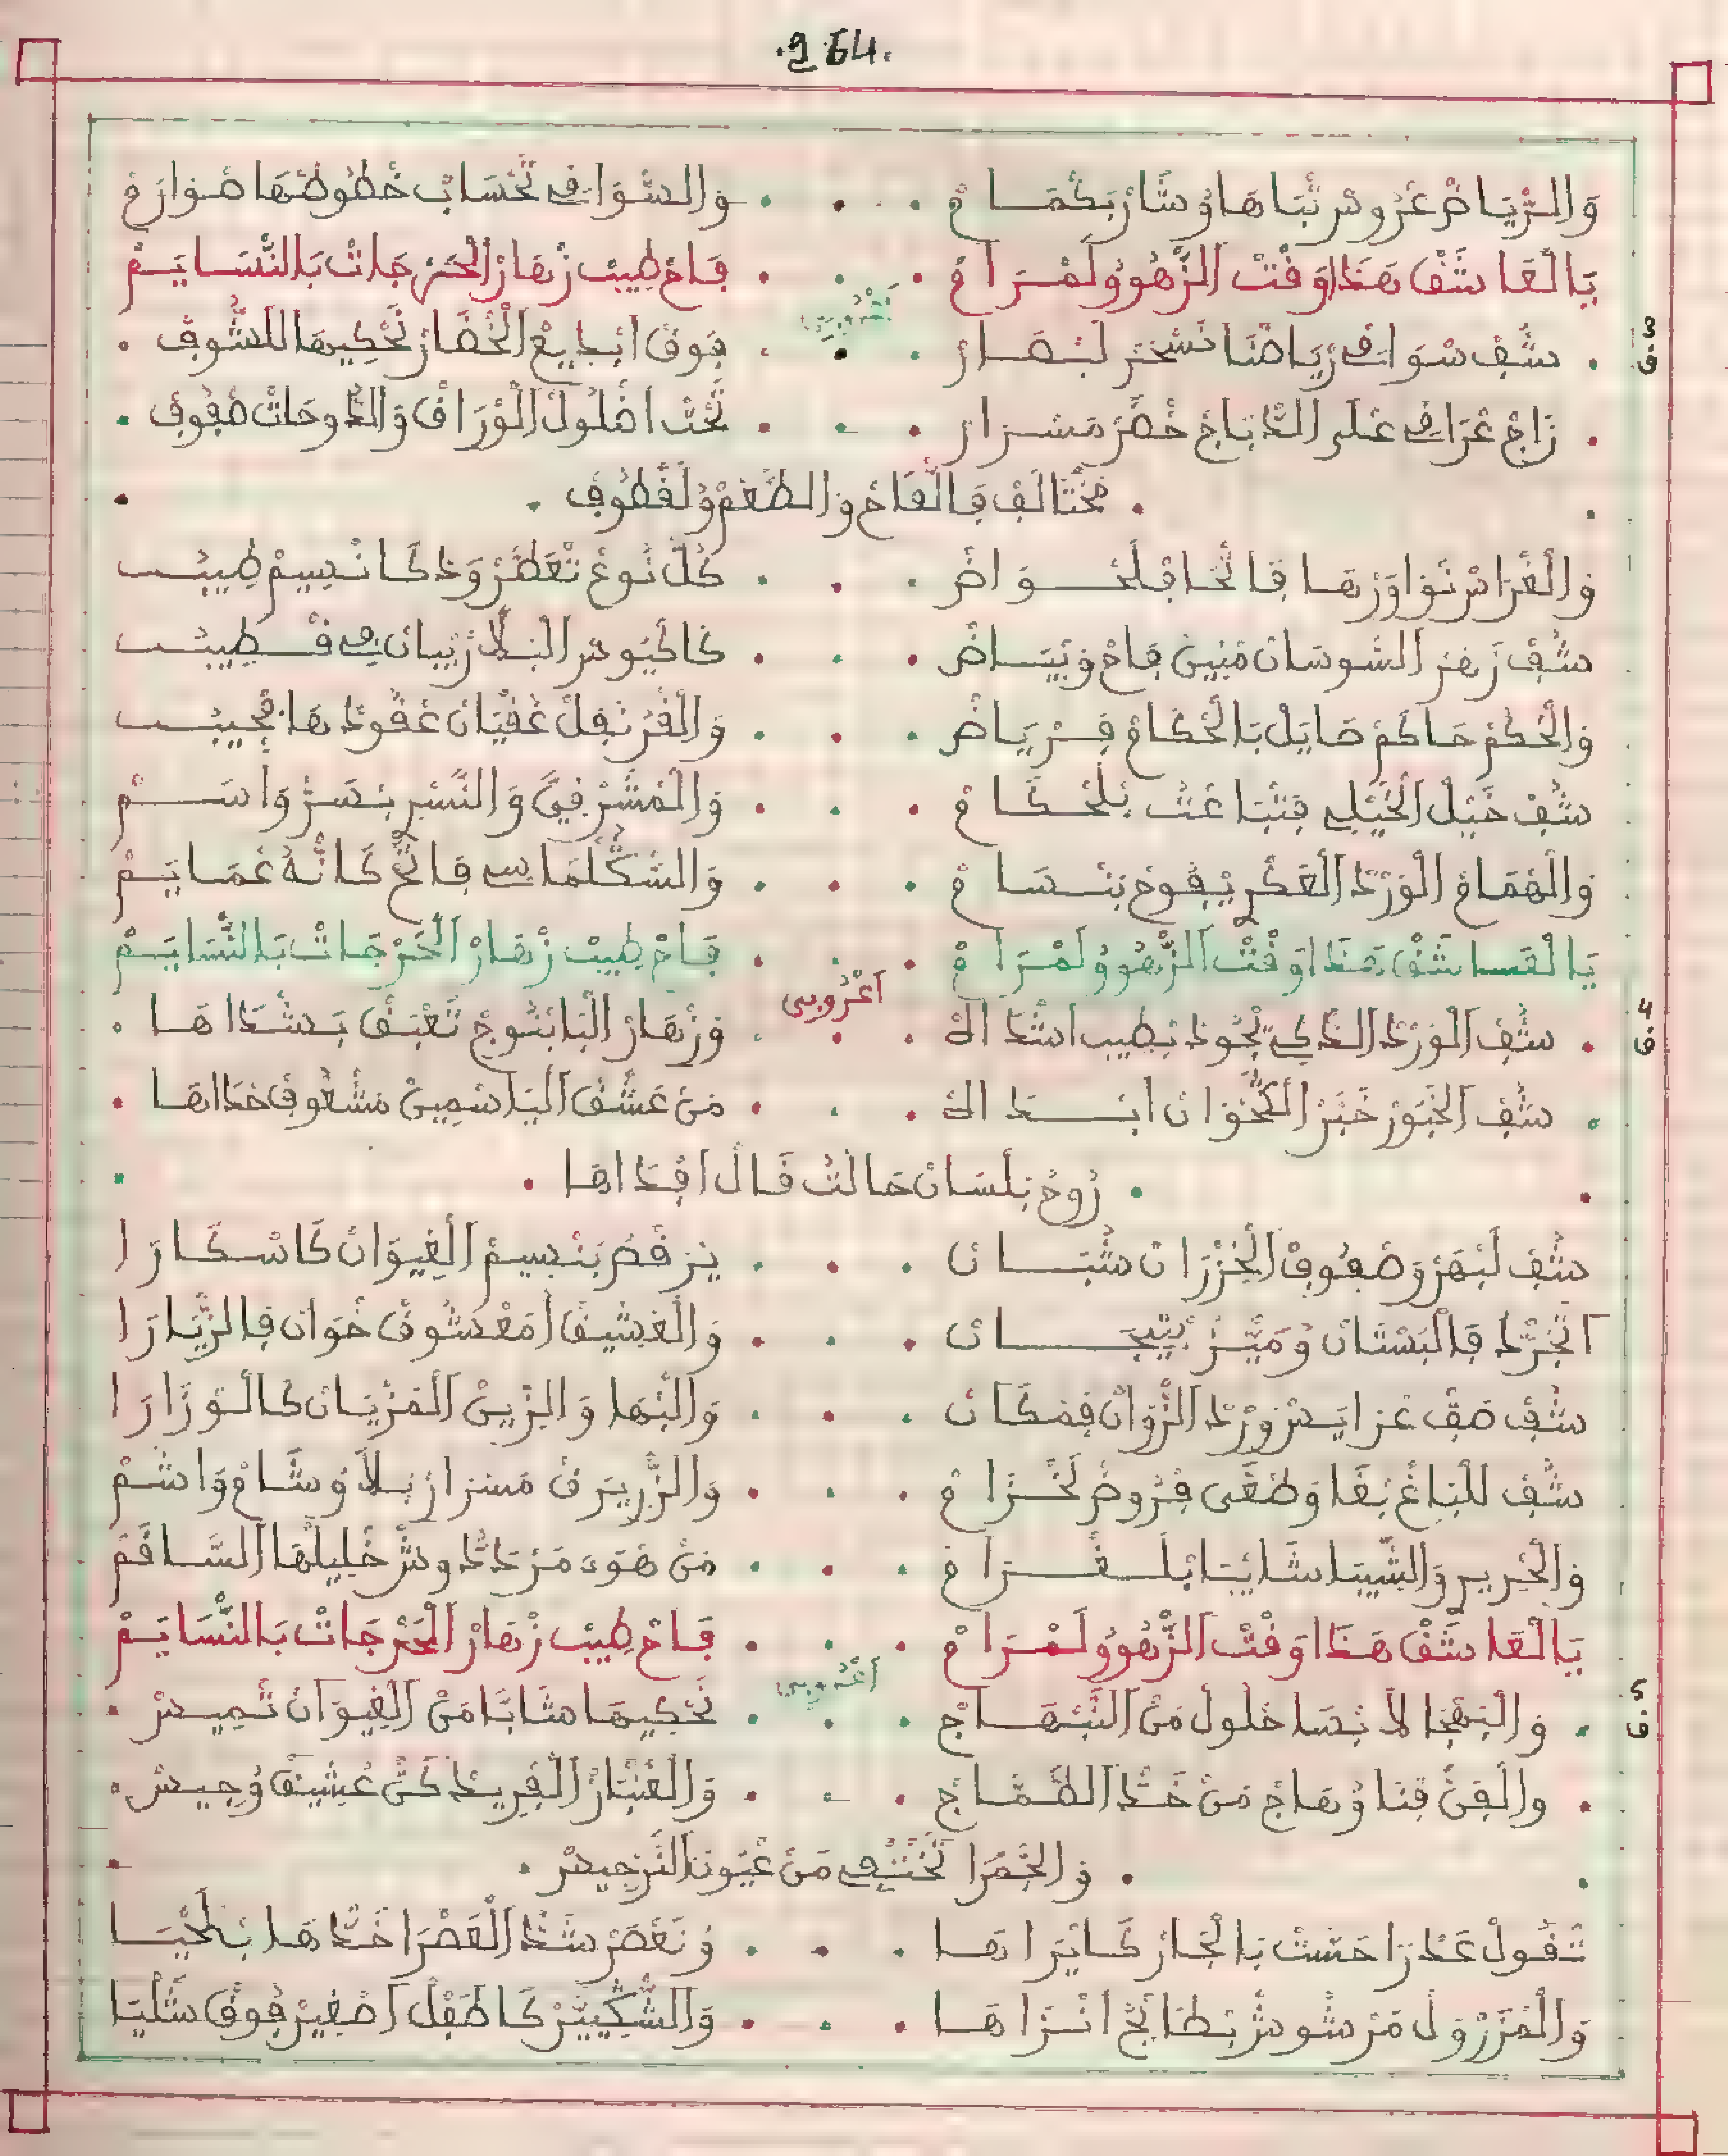 .264.
وَالرّْيَاضْ عْرُوسْ نْبَاهَا وُشَّارْ بَكْمَـامْ . . . وَالسّْوَاقِي تَحْسَابْ خْطُوطْهَا صْوَارَمْ
يَا الْعَاشَقْ هَذَا وَقْتْ الزّْهُو وُلَمْـرَامْ . . . فَاحْ طِيبْ زْهَارْ الْحَرْجَاتْ بَالنّْسَـايَـمْ
اَعْرُوبِي
3 ف
. شُفْ سْوَاقِي رْيَاضْنَا تَسْحَرْ لَبْصَـارْ . . . فُوقْ ابْدَايَعْ الْخْصَارْ تَحْكِيهَا لَلشُّوفْ .
. زَاجْ غْرَاقِي عْلَى الدّْبَاجْ خْضَرْ مَسْـرَارْ . . . تَحْتْ اضْلُولْ الْوْرَاقْ وَالدُّوحَاتْ صْفُوفْ .
. مُخْتَالَفْ فَالْقَاحْ وَالطّْعَمْ وُلَقْطُوفْ .
وَالْغْرَاسْ نْوَاوَرْهَا فَاتْحَا فْلَحْـوَاضْ . . . كُلّْ نُوعْ تْعَطَّرْ وَذْكَا نْسِيمْ طِيبُـ
شُفْ زَهْرْ السُّوسَانْ مْبَيَّنْ فَاحْ وَبْيَـاضْ . . . كَاكْيُوسْ الْبْلَارْ يْبَانْ فِي قْـطِيبُـ
وَالْحْكَمْ حَاكَمْ صَايَلْ بَالْحْكَامْ فَـرْيَـاضْ . . . وَالْقْرُنْفَلْ عَقْيَانْ عْقُودْهَا تْجِيبُـ
شُفْ خَيْلْ الْخَيْلِي فَتْبَاعْتُ بَلَحْكَـامْ . . . وَالْمَشْرْفِيَّ وَالنَّسْرِ بَسَرُّ وَاسَـمْ
وَالْهْمَامْ الْوَرْدْ الْعَكْرِي يْفُوحْ بَنْـسَـامْ . . . وَالشَّكْلْمَاسِي فَاتَحْ كَانُّهْ عْمَـايَـمْ
يَا الْعَـاشَقْ هَذَا وَقْتْ الزّْهُو وُلَمْـرَامْ . . . فَاحْ طِيبْ زْهَارْ الْحَرْجَاتْ بَالنّْسَايَـمْ
اَعْرُوبِي
4 ف
. شُفْ الْوَرْدْ الذَّكِي يْجُودْ بْطِيبْ اشْذَاهْ . . . وَزْهَارْ الْبَابْنُوجْ تَعْبَقْ بَـشْذَاهَـا .
. شُفْ الْخَبُّورْ خَبَّرْ الْكْحْوَانْ ابْـدَاهْ . . . مَنْ عَشْقْ الْيَاسْمِينْ مَشْغُوفْ حْدَاهَـا .
. رُوحْ بَلْسَانْ حَالْتُ قَـالْ افْدَاهَـا .
شُفْ لَبْهَرْ وَصْفُوفْ الْخِزْرَانْ شُبَّـانْ . . . يَرْقَصْ بَنْسِيمْ الْغِيوَانْ كَاسْكَـارَا
اتْجَرَّدْ فَالْبَسْتَانْ وُمَيَّـزْ بْتِيجَـانْ . . . وَالْعْشِيقْ اَمْعَشُوقْ خْوَانْ فَالزّْيَـارَا
شُفْ صَفّْ عْرَايَـسْ وَرْدْ الزّْوَانْ فَمْكَانْ . . . وَالْبْهَا وَالزِّينْ الْمَزْيَانْ كَالْـوْزَارَا
شُفْ لَلْبَاغْ بْغَا وَطْغَى فْرُوضْ لَخْـزَامْ . . . وَالزّْرِيرَقْ مَسْرَارْ بَـلَا وْشَـامْ وَاشَمْ
وَالْحْرِيرِ وَالشِّيبَا شَايْبَا بَلَـغْـرَامْ . . . مَنْ هْوَى مَرْدَدُّوشْ خْلِيلْهَا السَّـاقَمْ
يَا الْعَاشَقْ هَذَا وَقْتْ الزّْهُو وُلَمْـرَامْ . . . فَـاحْ طِيبْ زْهَارْ الْحَرْجَاتْ بَالنّْسَايَـمْ
اَعْرُوبِي
5 ف
. وَالْبَنْفْجَا لَا نْسَا خْلُولْ مَنْ النّْبْهَـاجْ . . . تَحْكِيهَا شَابَّا مَنْ الْغِيوَانْ تْمِيسْ .
. وَالْقَنّْ فْنَا وُهَاجْ مَنْ خَدّْ الطَّـمَّـاجْ . . . وَالْعَنْبَارْ الْفْرِيدْ كَنُّ عْشِيقْ وْحِيسْ .
. وَالْخَمْرَا تَخْتْفِي مَنْ عْيُونْ النَّرْجِيسْ .
تْقُولْ عَدْرَا حَسَّتْ بَالْجَارْ كَايْرَاهَـا . . . وُتَعْصَرْ شَدّْ الْعَصْرَا خَدّْهَا بَـلَحْيَـا
وَالْمَزْرُولْ مَرْشُوشْ بْطَابَعْ انْـزَاهَـا . . . وَالشّْكِيِّيرْ كَاطْفَلْ اصْغِيرْ فُوقْ شَلْيَا